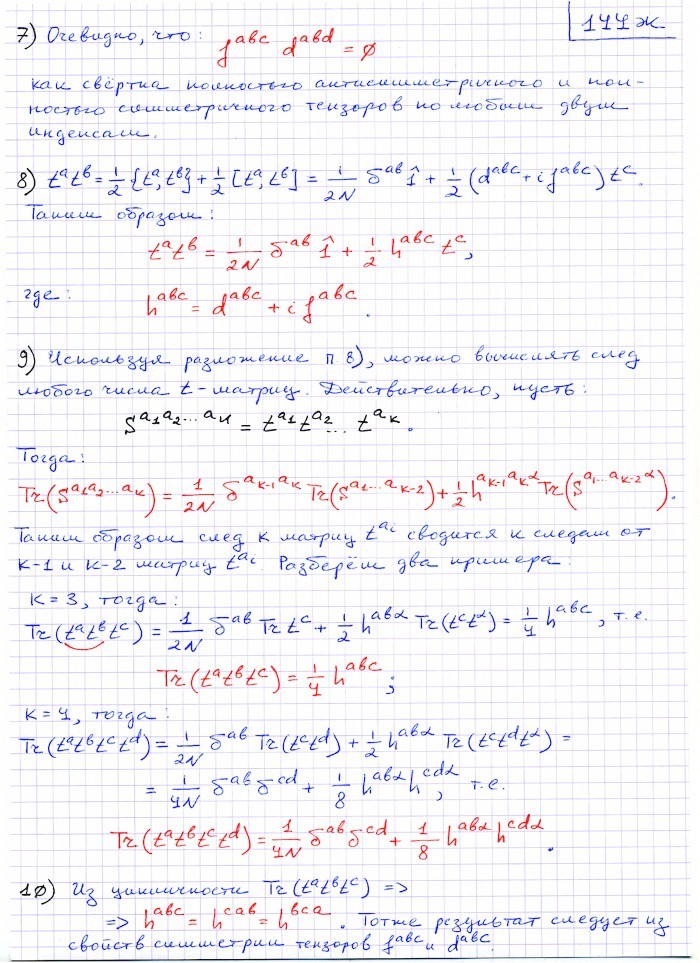 144ж
7) Очевидно, что: f^{abc} d^{abd} = ∅
как свёртка полностью антисимметричного и пол-
ностью симметричного тензоров по любым двум
индексам.
8) t^a t^b = 1/2 {t^a, t^b} + 1/2 [t^a, t^b] = 1/2N δ^{ab} 1̂ + 1/2 (d^{abc} + i f^{abc}) t^c.
Таким образом:
t^a t^b = 1/2N δ^{ab} 1̂ + 1/2 h^{abc} t^c,
где:
h^{abc} = d^{abc} + i f^{abc}.
9) Используя разложение п 8), можно вычислять след
любого числа t-матриц. Действительно, пусть:
S^{a_1 a_2 ... a_k} = t^{a_1} t^{a_2} ... t^{a_k}.
Тогда:
Tr(S^{a_1 a_2 ... a_k}) = 1/2N δ^{a_{k-1} a_k} Tr(S^{a_1 ... a_{k-2}}) + 1/2 h^{a_{k-1} a_k α} Tr(S^{a_1 ... a_{k-2} α}).
Таким образом след k матриц t^{a_i} сводится к следам от
k-1 и k-2 матриц t^{a_i}. Разберём два примера:
k = 3, тогда:
Tr(t^a t^b t^c) = 1/2N δ^{ab} Tr t^c + 1/2 h^{abα} Tr(t^c t^α) = 1/4 h^{abc}, т.е.
Tr(t^a t^b t^c) = 1/4 h^{abc};
k = 4, тогда:
Tr(t^a t^b t^c t^d) = 1/2N δ^{ab} Tr(t^c t^d) + 1/2 h^{abα} Tr(t^c t^d t^α) =
= 1/4N δ^{ab} δ^{cd} + 1/8 h^{abα} h^{cdα}, т.е.
Tr(t^a t^b t^c t^d) = 1/4N δ^{ab} δ^{cd} + 1/8 h^{abα} h^{cdα}.
1∅) Из цикличности Tr(t^a t^b t^c) =>
=> h^{abc} = h^{cab} = h^{bca}. Тотже результат следует из
свойств симметрии тензоров f^{abc} и d^{abc}.